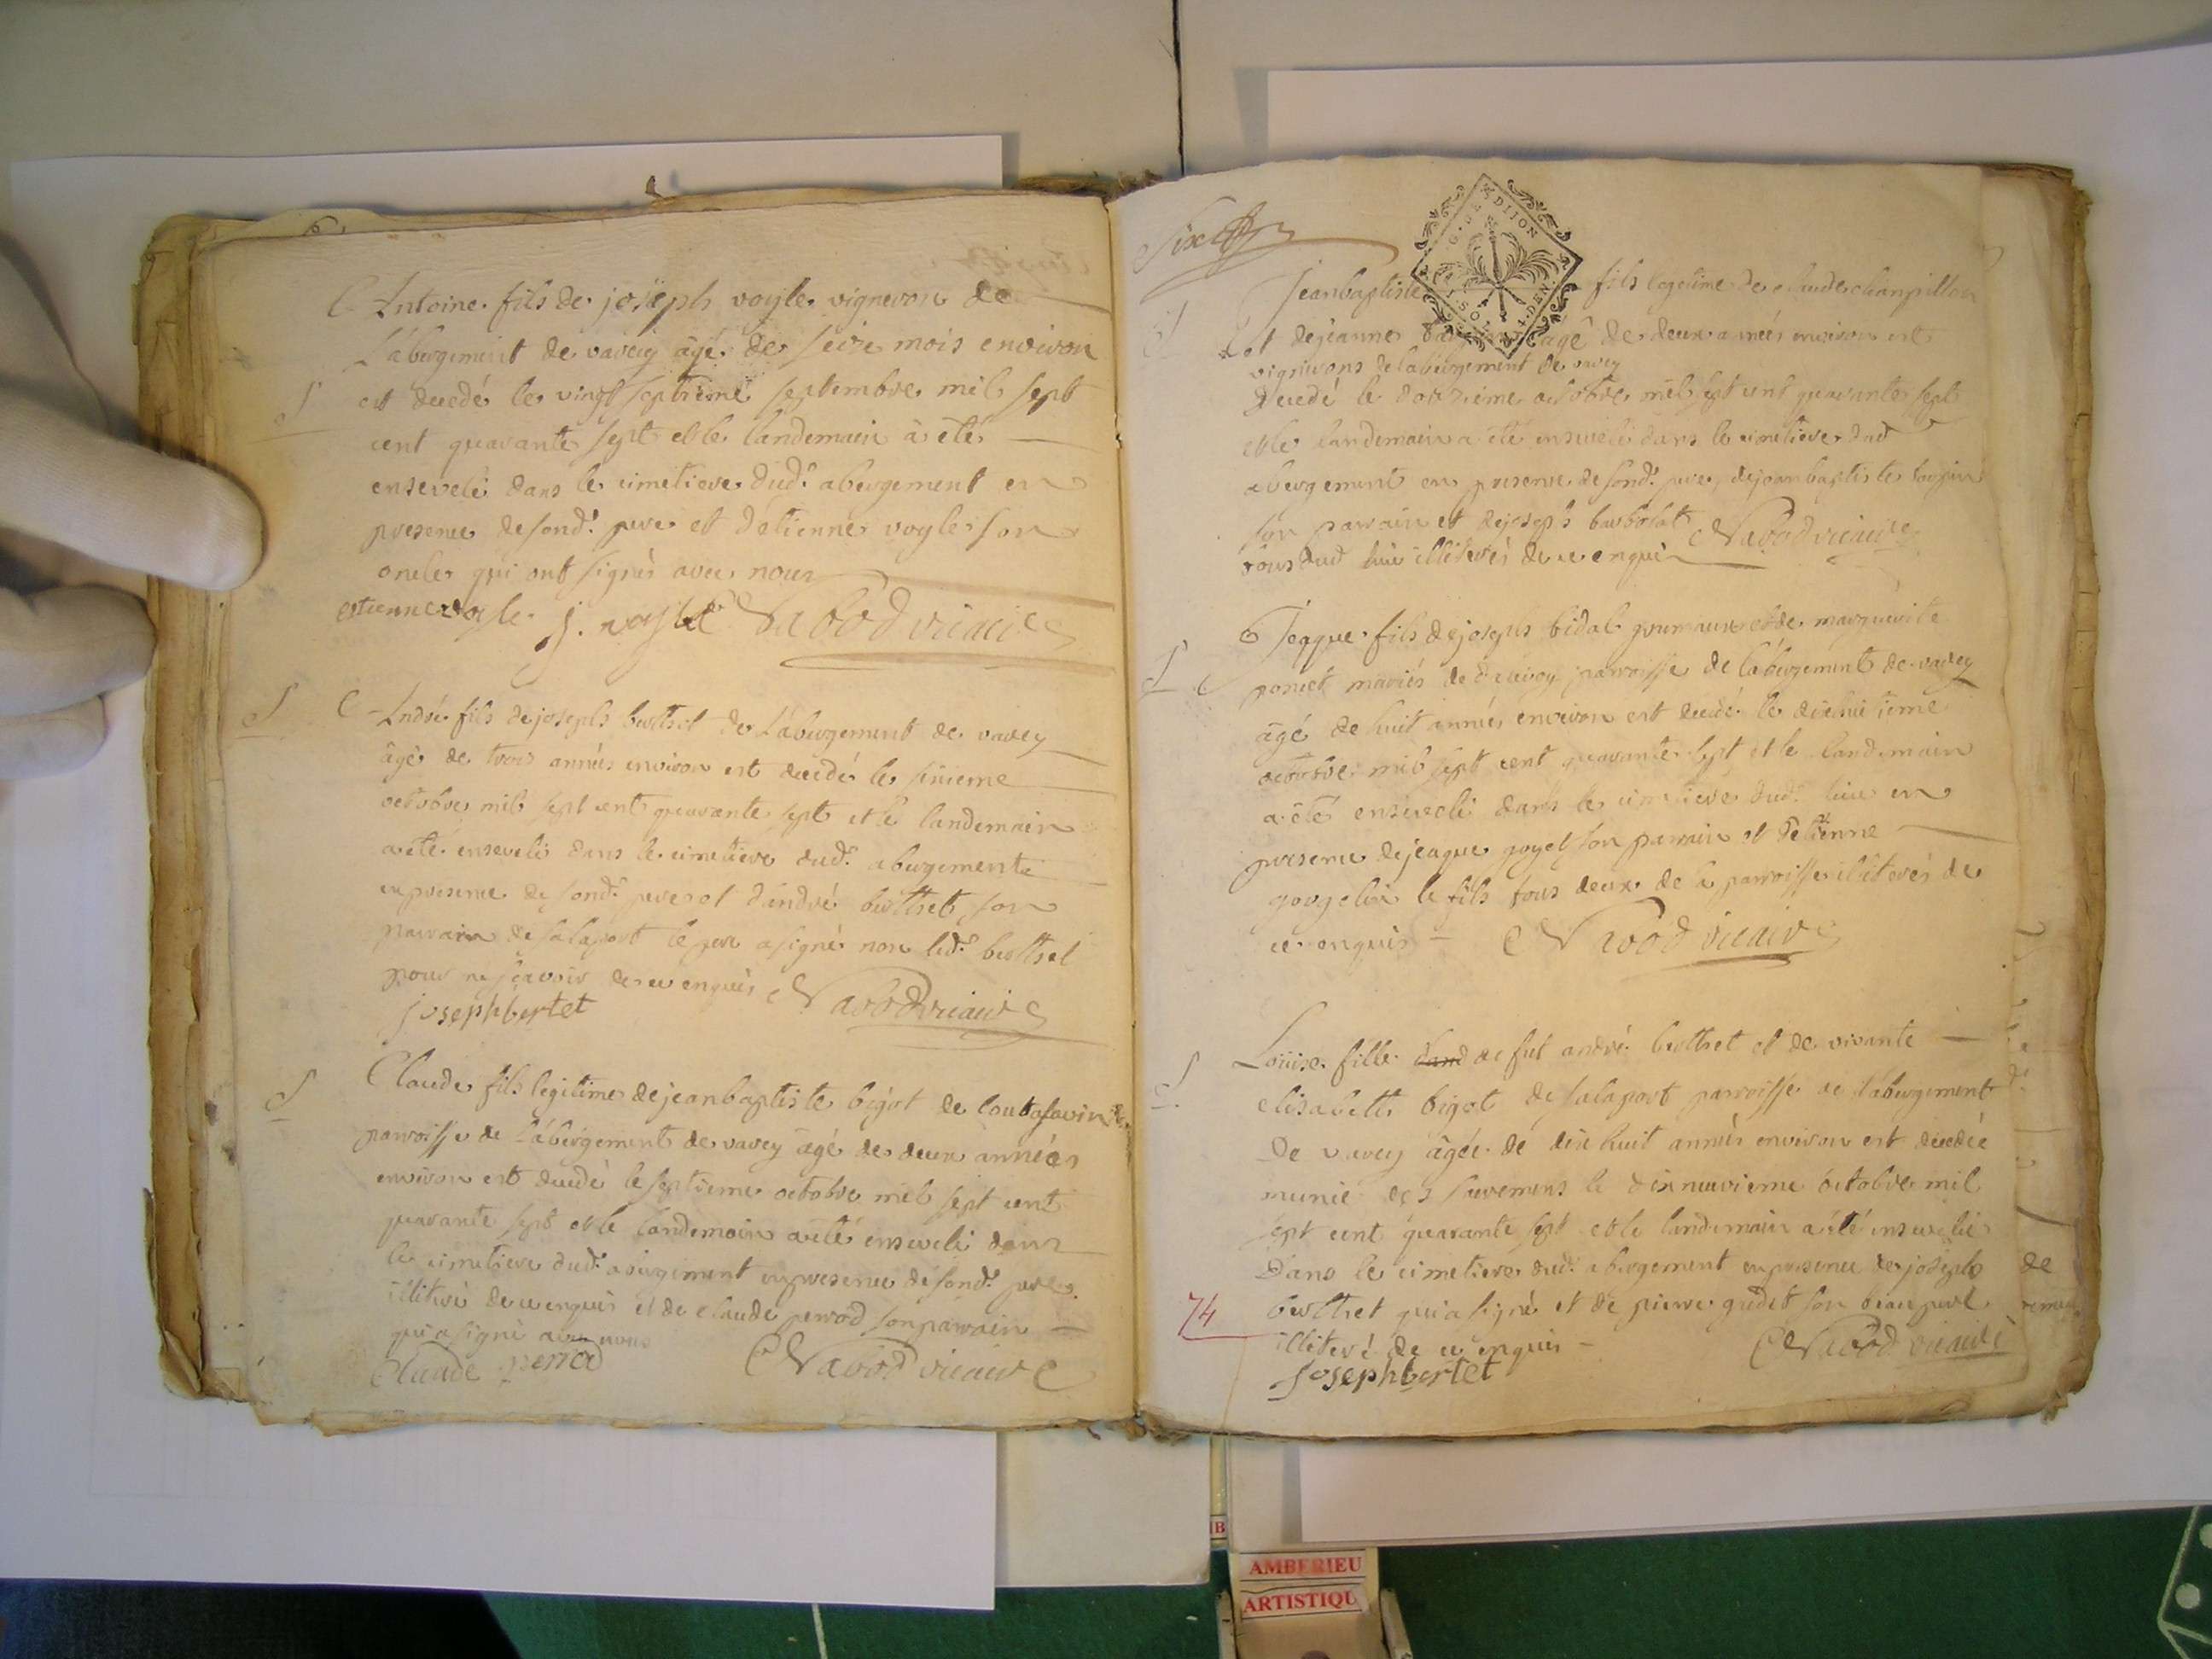 Antoine fils de joseph vogle vigneron de
L'abergement de varey âgé de seize mois environ
S
est decedé le vingt septieme septembre mil sept
cent quarante sept et le landemain à été
enseveli dans le cimetiere dud.t abergement en
presence de sond.t pere et d'etienne vogle son
oncle qui ont signés avec nous
estienne vogle j. vogle Navod vicaire
S
André fils de joseph berthet de L'abergement de varey
âgé de trois années environ est decedé le sixieme
octobre mil sept cent quarante sept et le landemain
a été enseveli dans le cimetiere dud.t abergement
en presence de sond.t pere et d'andré berthet son
parrain de salaport le pere a signé non led.t berthet
pour ne sçavoir de ce enquis Navod vicaire
joseph bertet
S
Claude fils legitime de jean baptiste bigot de
parroisse de L'abergement de varey âgé de deux années
environ est decedé le septieme octobre mil sept cent
quarante sept et le landemain a été enseveli dans
le cimetiere dud.t abergement en presence de sond.t pere
illiteré de ce enquis et de claude perrod son parrain
qui a signé avec nous
Claude perrod Navod vicaire
Six
G. DE DIJON
Jean baptiste fils legitime de claude chanpillon
S
et de jeanne âgé de deux années environ est
vignerons de labergement de varey
decedé le douzieme octobre mil sept cent quarante sept
et le landemain a été enseveli dans le cimetiere dud
abergement en presence de sond.t pere, de jean baptiste
son parrain et de joseph Navod vicaire
tous dud lieu illiterés de ce enquis
S
Jeque fils de joseph bidal et de marguerite
ponict mariés de parroisse de l'abergement de varey
âgé de huit années environ est decedé le dixhuitieme
octobre mil sept cent quarante sept et le landemain
a été enseveli dans le cimetiere dud.t lieu en
presence de jeaque goyet son parrain et d'etienne
le fils tous deux de la parroisse illiterés de
ce enquis Navod vicaire
S
Loüise fille de fut andré berthet et de vivante
elisabeth bigot de salaport parroisse de l'abergement
De varey âgée de dix huit années environ est decedée
munie des sacremens le dixneuvieme octobre mil
sept cent quarante sept et le landemain a été ensevelie
Dans le cimetiere dud.t abergement en presence de joseph
74
berthet qui a signé et de pierre gredet son beau pere
illiteré de ce enquis Navod vicaire
joseph bertet
de
AMBERIEU
ARTISTIQU